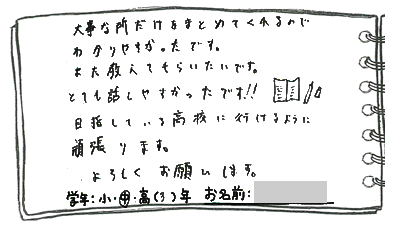 大事な所だけをまとめてくれるので
わかりやすかったです。
また教えてもらいたいです。
とても話しやすかったです!!
目指している高校に行けるように
頑張ります。
よろしくお願いします。
学年:小・中・高(3)年 お名前: